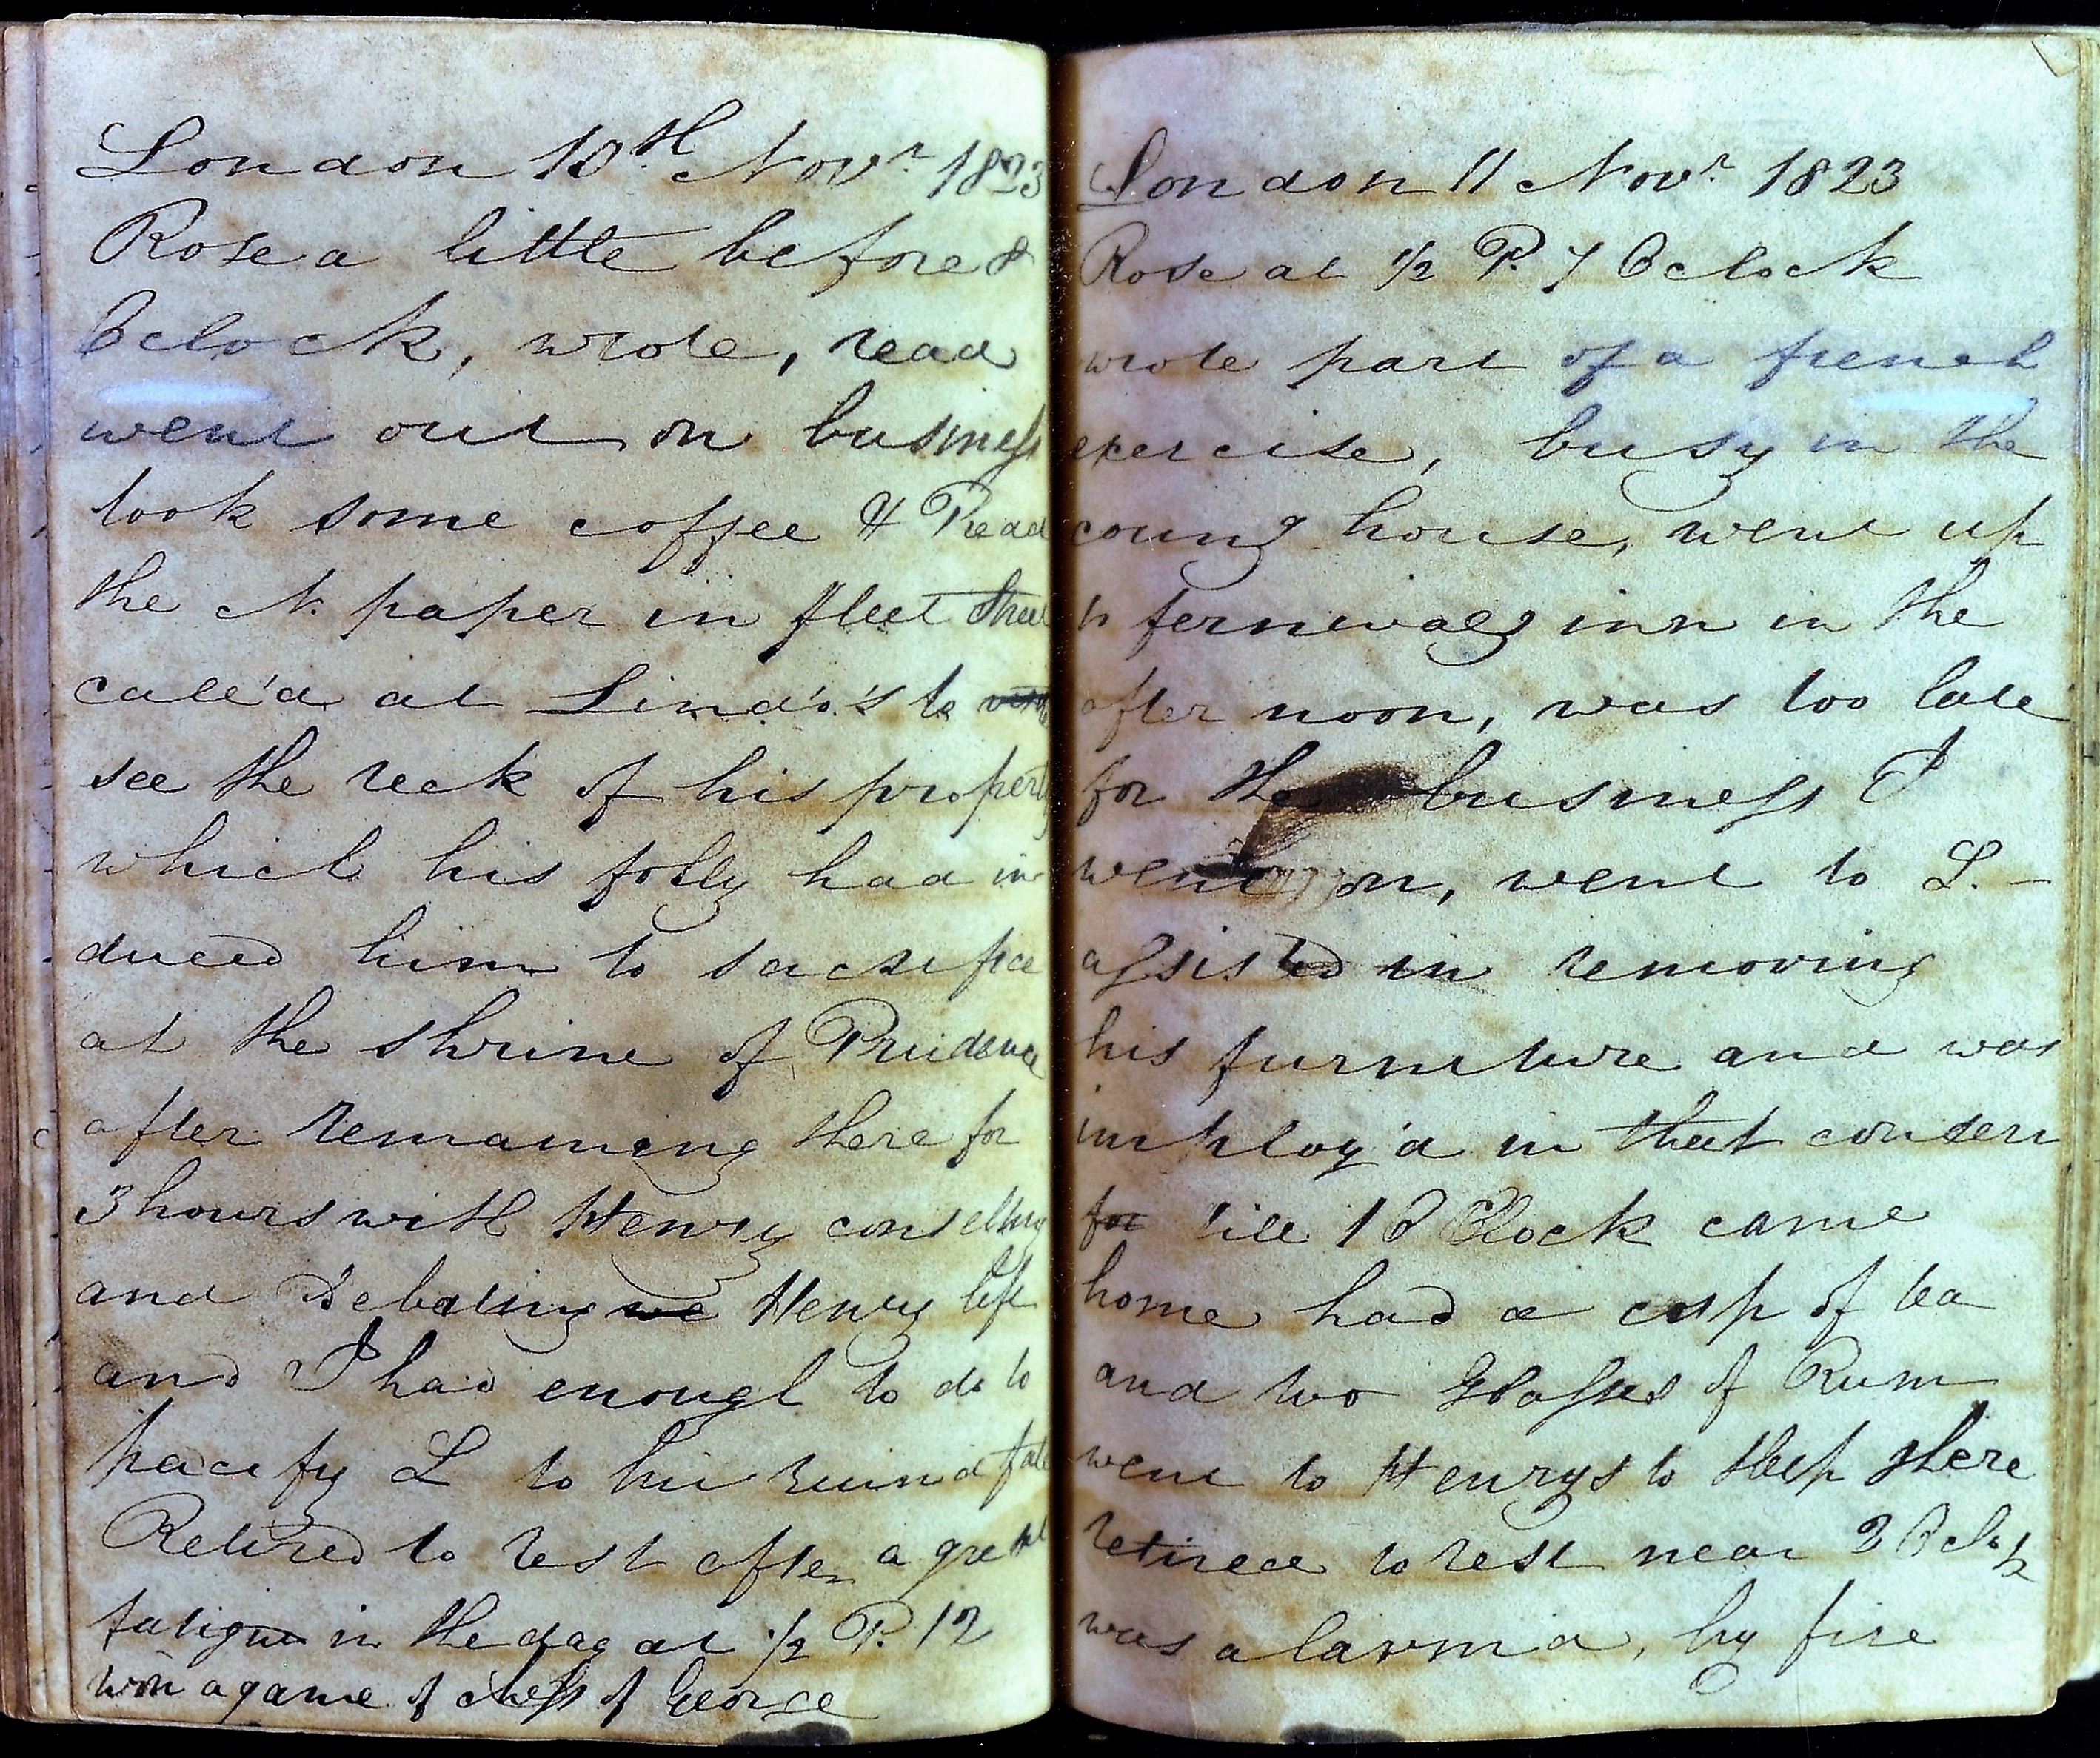 London 10th Novr 1823
Rose a little before 8
Oclock, wrote, read
went out on business
took some coffee & Read
the N. paper in fleet Street
call'd at Lindo's to
see the reck of his property
which his folly had in-
duced him to sacrifice
at the shrine of Prudence
after remaining there for
3 hours with Henry conselling
and Debating we Henry left
and I had enough to do to
pacify L to his ruind fate
Retired to rest after a great
fatigue in the day at 1/2 P. 12
won a game of chess of George
London 11 Novr 1823
Rose at 1/2 P. 7 Oclock
wrote part of a french
exercise, busy in the
coung house, went up
to fernivals inn in the
after noon, was too late
for the business I
went on, went to L. -
assisted in removing
his furniture and was
imploy'd in that concern
for till 1 O Clock came
home had a cup of tea
and two Glasses of Rum
went to Henrys to sleep there
retired to rest near 2 Oclok
was alarm'd, by fire